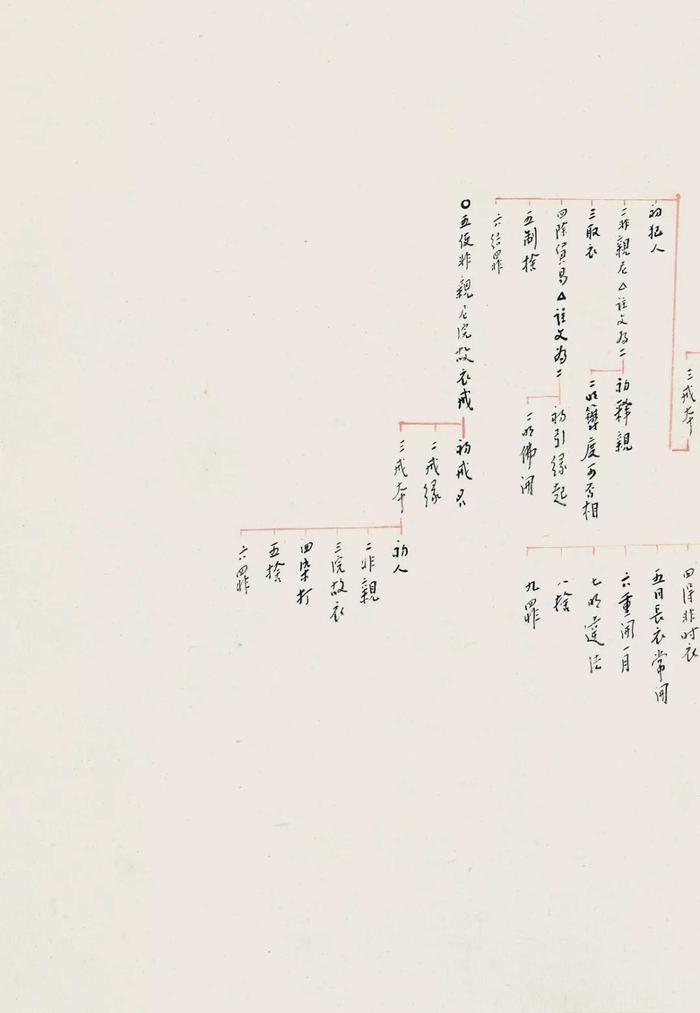 三戒本
初犯人
二非親尼△註文為二
初釋親
二明簪度可否相
三取衣
四除貿易△註文為二
初引緣起
二明佛開
五制捨
六結罪
四得非时衣
五日長衣常開
六重開一月
七明違法
八捨
九罪
○五使非親尼浣故衣戒
初戒名
二戒緣
三戒本
初人
二非親
三浣故衣
四染打
五捨
六罪